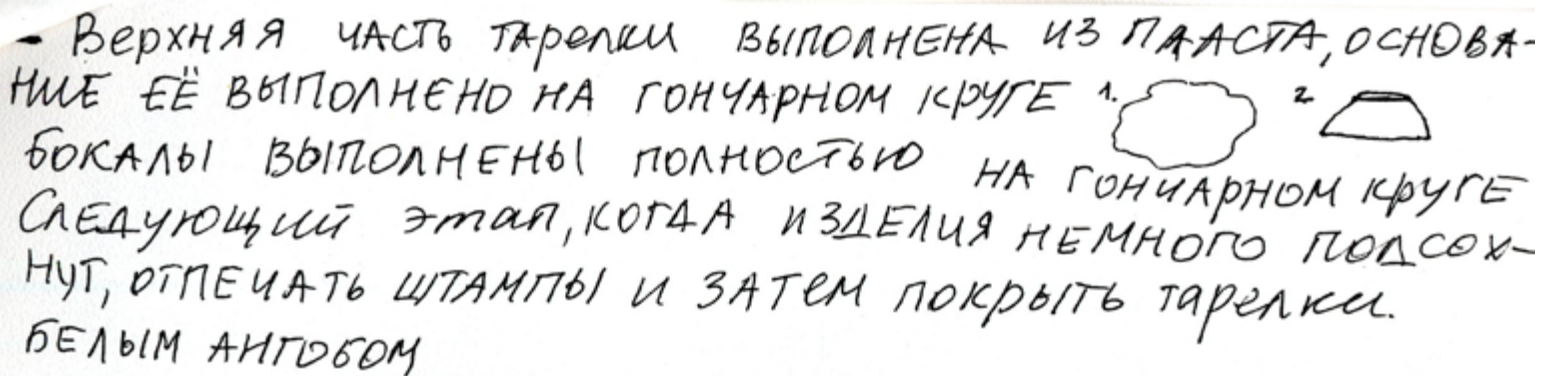 - Верхняя часть тарелки выполнена из пласта, основа-
ние её выполнено на гончарном круге 1. 2
бокалы выполнены полностью на гончарном круге
Следующий этап, когда изделия немного подсох-
нут, отпечать штампы и затем покрыть тарелки.
белым ангобом